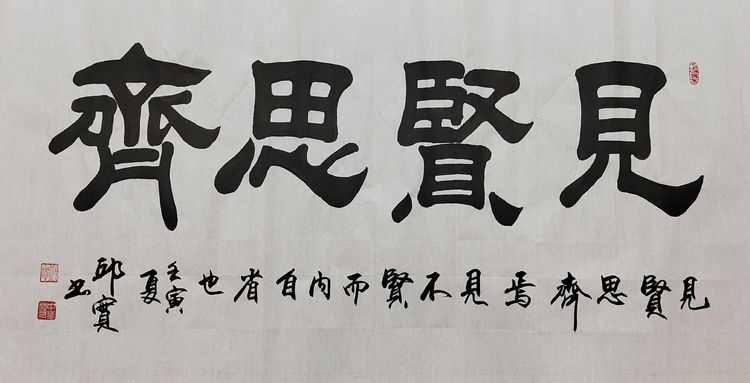 見賢思齊
見賢思齊焉見不賢而内自省也
壬寅夏
邱寶
书